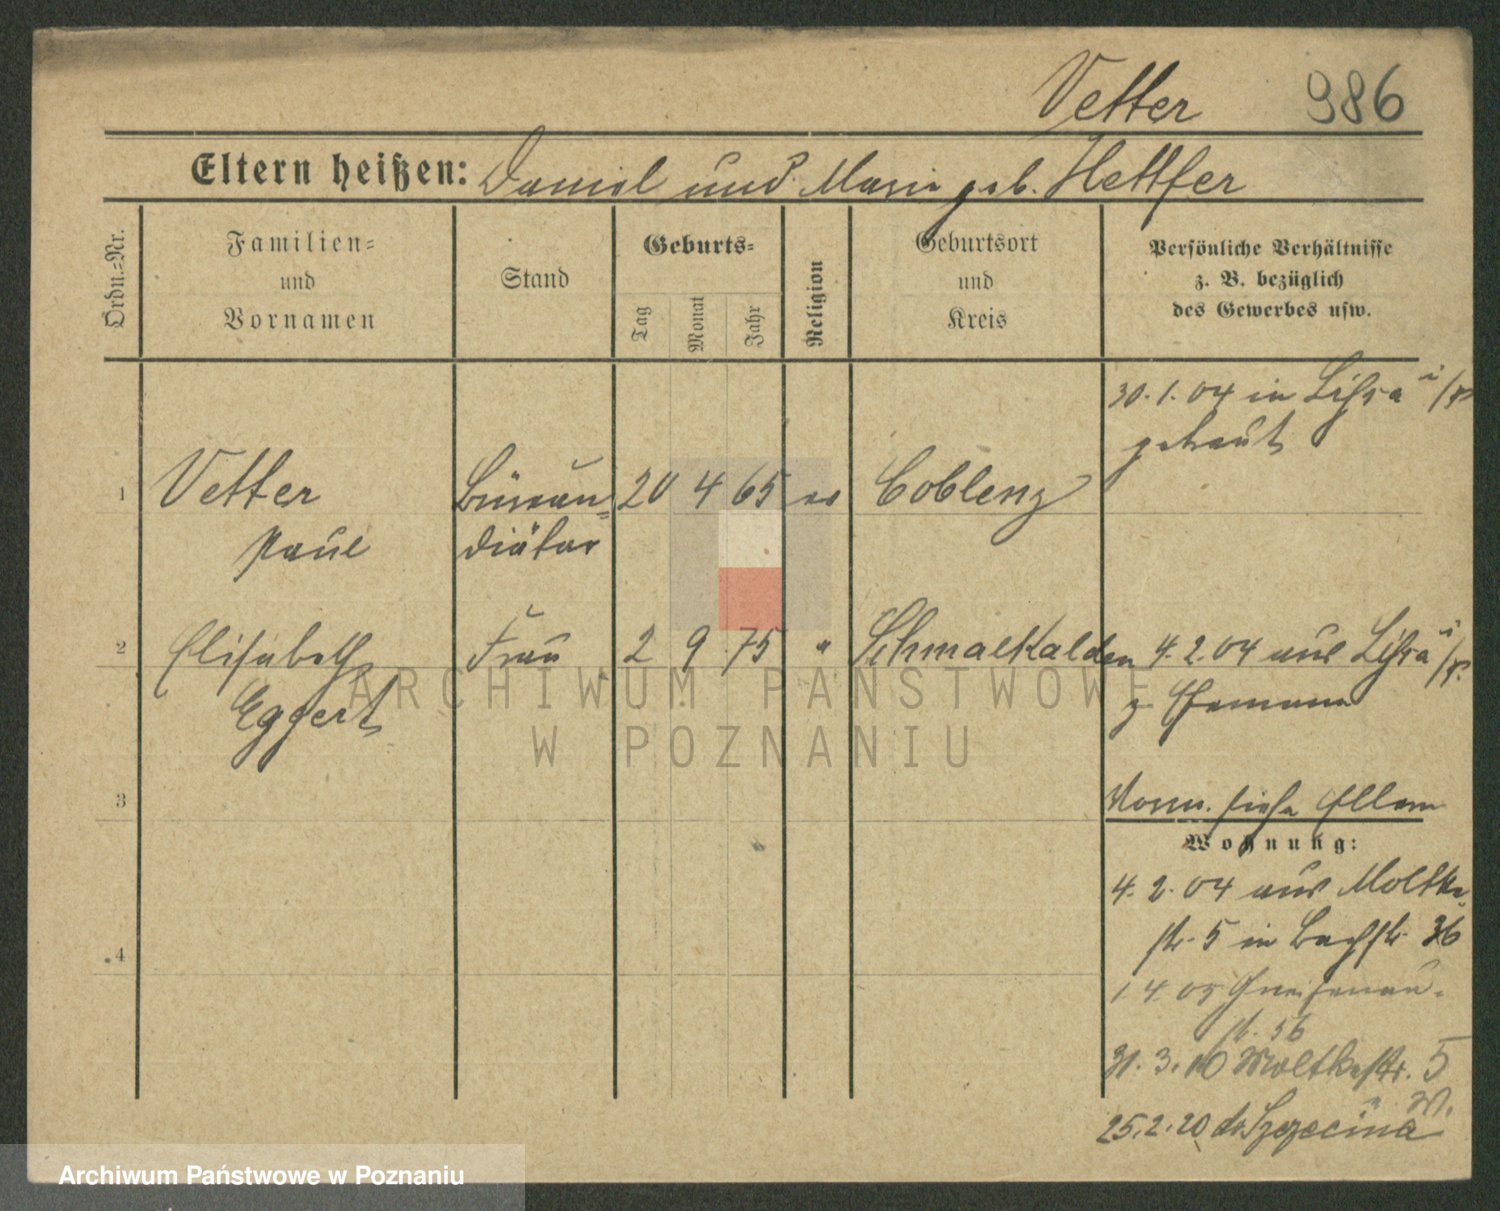 Vetter 986
Eltern heißen: Daniel und Marie geb. Hettfer
Ordn.=Nr.
Familien=
und
Vornamen
Stand
Geburts=
Tag
Monat
Jahr
Religion
Geburtsort
und
Kreis
Persönliche Verhältnisse
z. B. bezüglich
des Gewerbes usw.
30.1.04 in Lissa i/P.
getraut
1 Vetter Büreau= 20 4 65 ev Coblenz
Paul diätar
2 Elisabeth Frau 2 9 75 " Schmalkalden 4.2.04 aus Lissa i/P.
Eggert z. Ehemann
3
siehe Eltern
Wohnung:
4.2.04 aus Moltke
str. 5 in Bachstr. 36
4
1 4 05 Gneisenau-
str. 36
31.3.10 Moltkestr. 5
25.2.20 do Szczecina
ARCHIWUM PAŃSTWOWE
W POZNANIU
Archiwum Państwowe w Poznaniu